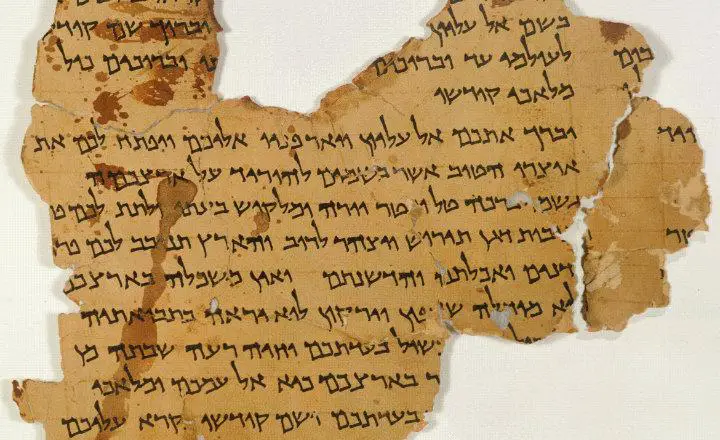 בשם אל עליון וברוך שם קודש
לעולמי עד וברוכים וברוכים כול
מלאכי קודשו
יברך אתכם אל עליון ויאר פניו אליכם ויפתח לכם את
אוצרו הטוב אשר בשמים להוריד על ארצכמה
גשמי ברכה טל ומטר יורה ומלקוש בעתו ולתת לכם
תנובות דגן תירוש ויצהר לרוב והארץ תנובב לכם פרי
עדנים ואכלתם והדשנתם ואין משכלה בארצכם
ולוא מוחלה שדפון וירקון לוא יראה בתבואתיה
כשול בעדתכם וחיה רעה שבתה מן
ר בארצכם כיא אל עמכם ומלאכי
בעדתכם ושם קודשו נקרא עליכם